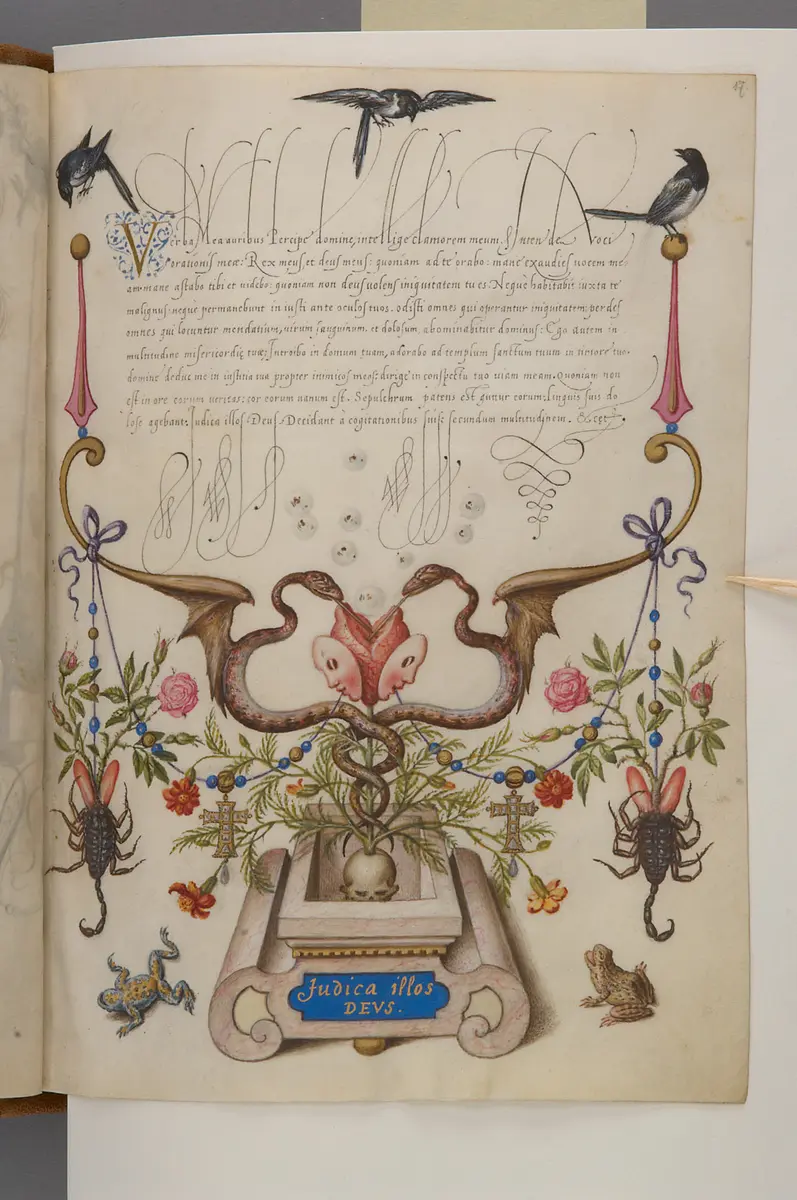 17.
Verba Mea auribus Percipe domine, intellige clamorem meum. Intende Voci
orationis meæ: Rex meus, et deus meus: quoniam ad te orabo: mane exaudies vocem me
am: mane astabo tibi et uidebo: quoniam non deus uolens iniquitatem tu es. Neque habitabit iuxta te
malignus: neque permanebunt in iusti ante oculos tuos. odisti omnes qui operantur iniquitatem: perdes
omnes qui locuntur mendatium, uirum sanguinum, et dolosum, abominabitur dominus: Ego autem in
multitudine misericordię tuæ: Introibo in domum tuam, adorabo ad templum sanctum tuum in timore tuo.
domine deduc me in iustitia tua propter inimicos meos: dirige in conspectu tuo uiam meam. Quoniam non
est in ore eorum ueritas: cor eorum uanum est. Sepulchrum patens est gutur eorum: linguis suis do
lose agebant: Judica illos Deus. Decidant à cogitationibus suis: secundum multitudinem. &cet.
Judica illos
DEVS.